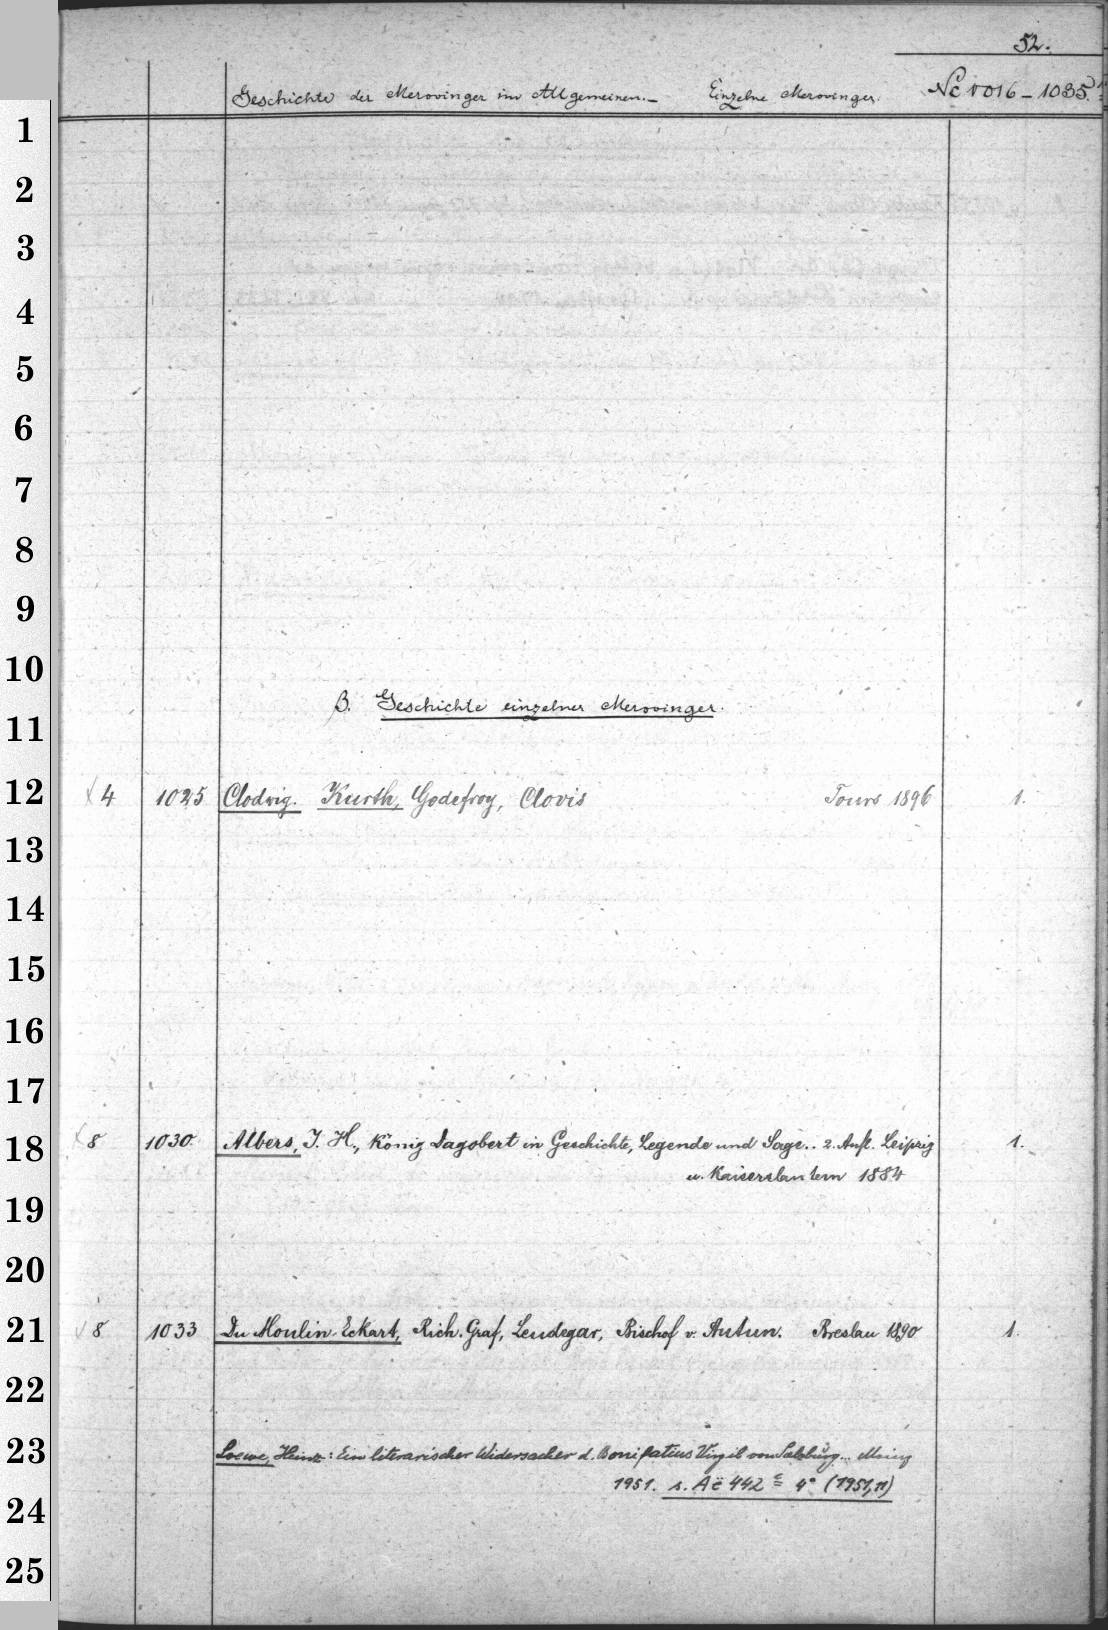 52.
Geschichte der Merovinger im Allgemeinen. — Einzelne Merovinger. Nc 1016 – 1035.
1
2
3
4
5
6
7
8
9
10
B. Geschichte einzelner Merovinger.
11
12 4 1025 Clodwig. Kurth, Godefroy, Clovis Tours 1896 1.
13
14
15
16
17
18 8 1030. Albers, J. H., König Dagobert in Geschichte, Legende und Sage.. 2. Aufl. Leipzig 1.
u. Kaiserslautern 1884
19
20
21 8 1033 Du Moulin-Eckart, Rich. Graf, Leudegar, Bischof v. Autun. Breslau 1890 1.
22
23 Loewe, Heinz: Ein literarischer Widersacher d. Bonifatius Virgil von Salzburg... Mainz
1951. s. Aë 442 4° (1951,11)
24
25